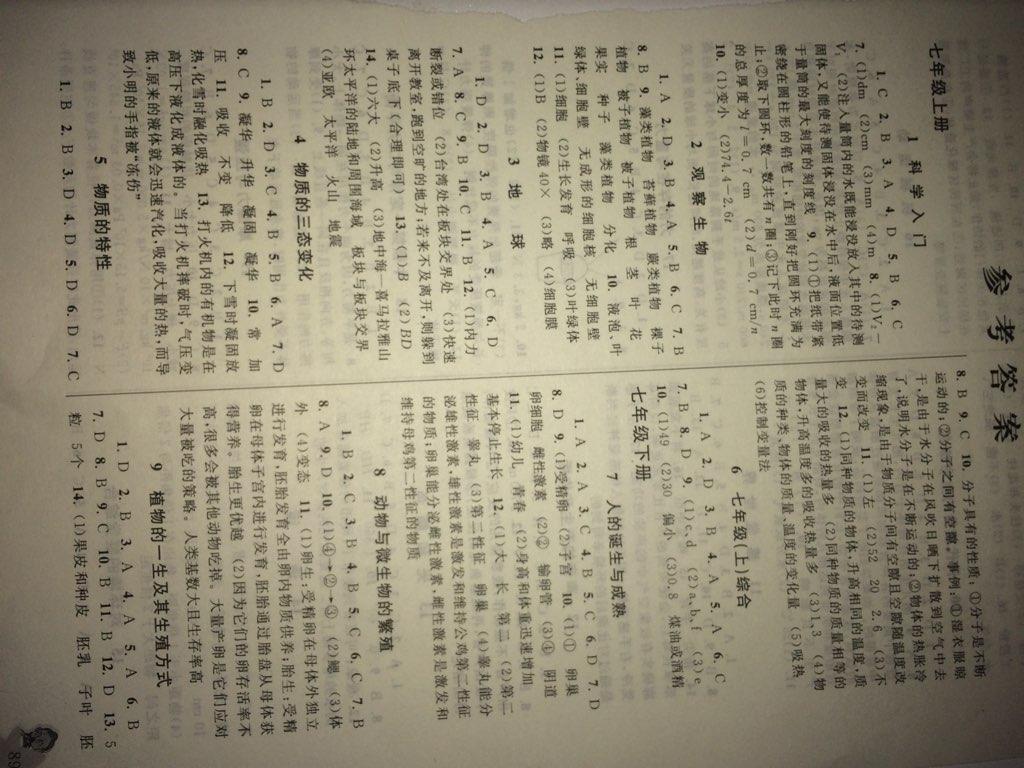 参考答案
七年级上册
1 科学入门
1. C 2. B 3. A 4. D 5. B 6. C
7. (1)dm (2)cm (3)mm (4)m 8. (1)V₂－
V₁ (2)注入量筒内的水既能浸没放入其中的待测
固体,又能使待测固体浸没在水中后,液面位置低
于量筒的最大刻度的刻度线 9. (1)①把纸带紧
密绕在圆柱形的铅笔上,直到刚好把圆环充满为
止;②取下圆环,数一数共有n圈;③记下此时n圈
的总厚度为l＝0.7 cm (2)d＝0.7 cm/n
10. (1)变小 (2)74.4－2.6t
2 观察生物
1. A 2. D 3. B 4. A 5. B 6. C 7. B
8. B 9. 藻类植物 苔藓植物 蕨类植物 裸子
植物 被子植物 被子植物 根 茎 叶 花
果实 种子 藻类植物 分化 10. 液泡、叶
绿体、细胞壁 无成形的细胞核 无细胞壁
11. (1)细胞 (2)生长发育 呼吸 (3)叶绿体
12. (1)B (2)物镜40× (3)略 (4)细胞膜
3 地球
1. D 2. D 3. B 4. A 5. C 6. D
7. A 8. C 9. B 10. C 11. B 12. (1)内力
断裂或错位 (2)台湾处在板块交界处 (3)快速
离开教室,跑到空旷的地方;若来不及离开,则躲到
桌子底下(合理即可) 13. (1)B (2)BD
14. (1)六大 (2)升高 (3)地中海—喜马拉雅山
环太平洋的陆地和周围海域 板块与板块交界
(4)亚欧 太平洋 火山 地震
4 物质的三态变化
1. B 2. D 3. C 4. B 5. B 6. A 7. D
8. C 9. 凝华 升华 凝固 凝华 10. 常 加
压 11. 吸收 不变 降低 12. 下雪时凝固放
热,化雪时融化吸热 13. 打火机内的有机物是在
高压下液化成液体的。当打火机摔破时,气压变
低,原来的液体就会迅速汽化,吸收大量的热,而导
致小明的手指被“冻伤”
5 物质的特性
1. B 2. B 3. D 4. D 5. D 6. D 7. C
8. B 9. C 10. 分子具有的性质:①分子是不断
运动的;②分子之间有空隙。事例:①湿衣服晾
干,是由于水分子在风吹日晒下扩散到空气中去
了,说明水分子是在不断运动的;②物体的热胀冷
缩现象,是由于物质分子间有空隙且空隙随温度改
变而改变 11. (1)左 (2)52 20 2.6 (3)不
变 12. (1)同种物质的物体,升高相同的温度,质
量大的吸收的热量多 (2)同种物质的质量相等的
物体,升高温度多的吸收热量多 (3)1、3 (4)物
质的种类、物体的质量、温度的变化量 (5)吸热
(6)控制变量法
6 七年级(上)综合
1. A 2. D 3. B 4. A 5. A 6. C
7. B 8. D 9. (1)c、d (2)a、b、f (3)e
10. (1)49 (2)30 偏小 (3)0.8 煤油或酒精
七年级下册
7 人的诞生与成熟
1. A 2. A 3. C 4. B 5. C 6. D 7. D
8. D 9. (1)受精卵 (2)子宫 10. (1)① 卵巢
卵细胞 雌性激素 (2)② 输卵管 (3)④ 阴道
11. (1)幼儿 青春 (2)身高和体重迅速增加
基本停止生长 12. (1)大 长 第二 (2)第二
性征 睾丸 (3)第二性征 卵巢 (4)睾丸能分
泌雄性激素,雄性激素是激发和维持公鸡第二性征
的物质,卵巢能分泌雌性激素,雌性激素是激发和
维持母鸡第二性征的物质
8 动物与微生物的繁殖
1. B 2. C 3. B 4. B 5. C 6. C 7. B
8. A 9. D 10. (1)④→②→③ (2)鳃 (3)体
外 (4)变态 11. (1)卵生:受精卵在母体外独立
进行发育,胚胎发育全由卵内物质供养;胎生:受精
卵在母体子宫内进行发育,胚胎通过胎盘从母体获
得营养。胎生更优越 (2)因为它们的卵存活率不
高,很多会被其他动物吃掉。大量产卵是它们应对
大量被吃的策略。人类基数大且生存率高
9 植物的一生及其生殖方式
1. D 2. B 3. A 4. A 5. A 6. B
7. D 8. B 9. C 10. B 11. B 12. D 13. 5
粒 5个 14. (1)果皮和种皮 胚乳 子叶 胚
89